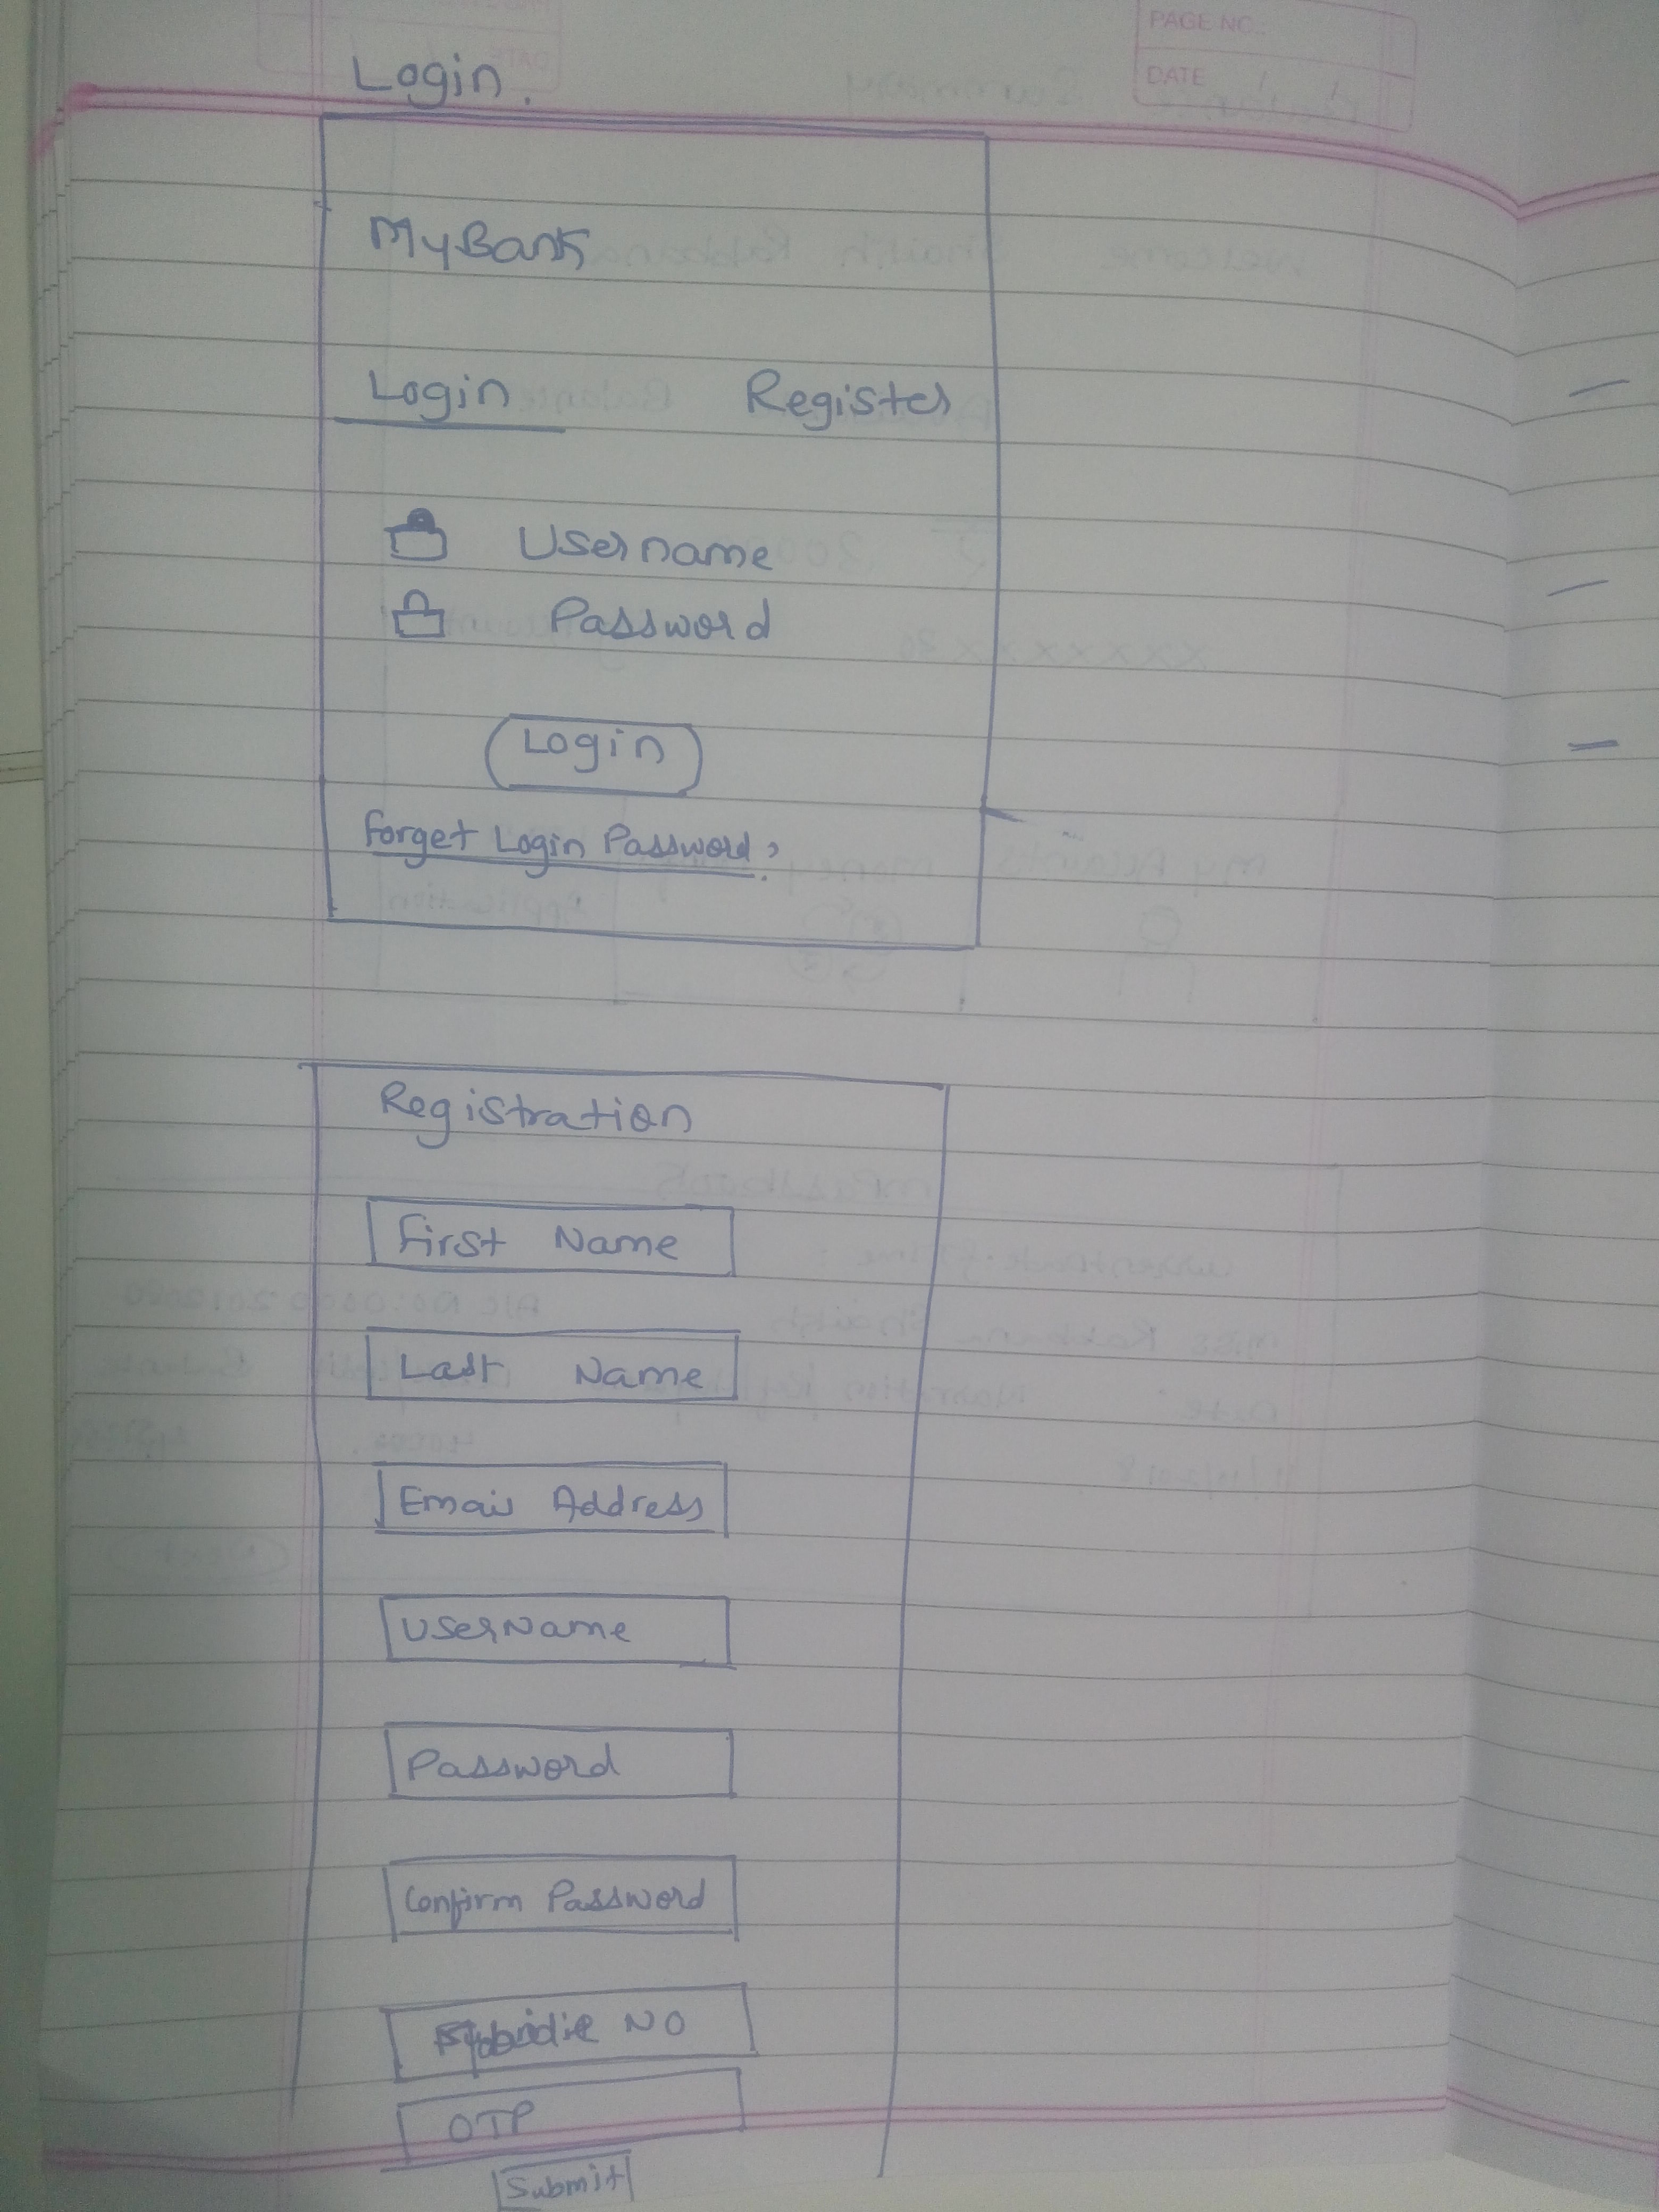 PAGE NO.
DATE
Login.
MyBank
Login Register
Username
Password
Login
Forget Login Password?
Registration
First Name
Last Name
Email Address
UserName
Password
Confirm Password
NO
OTP
Submit